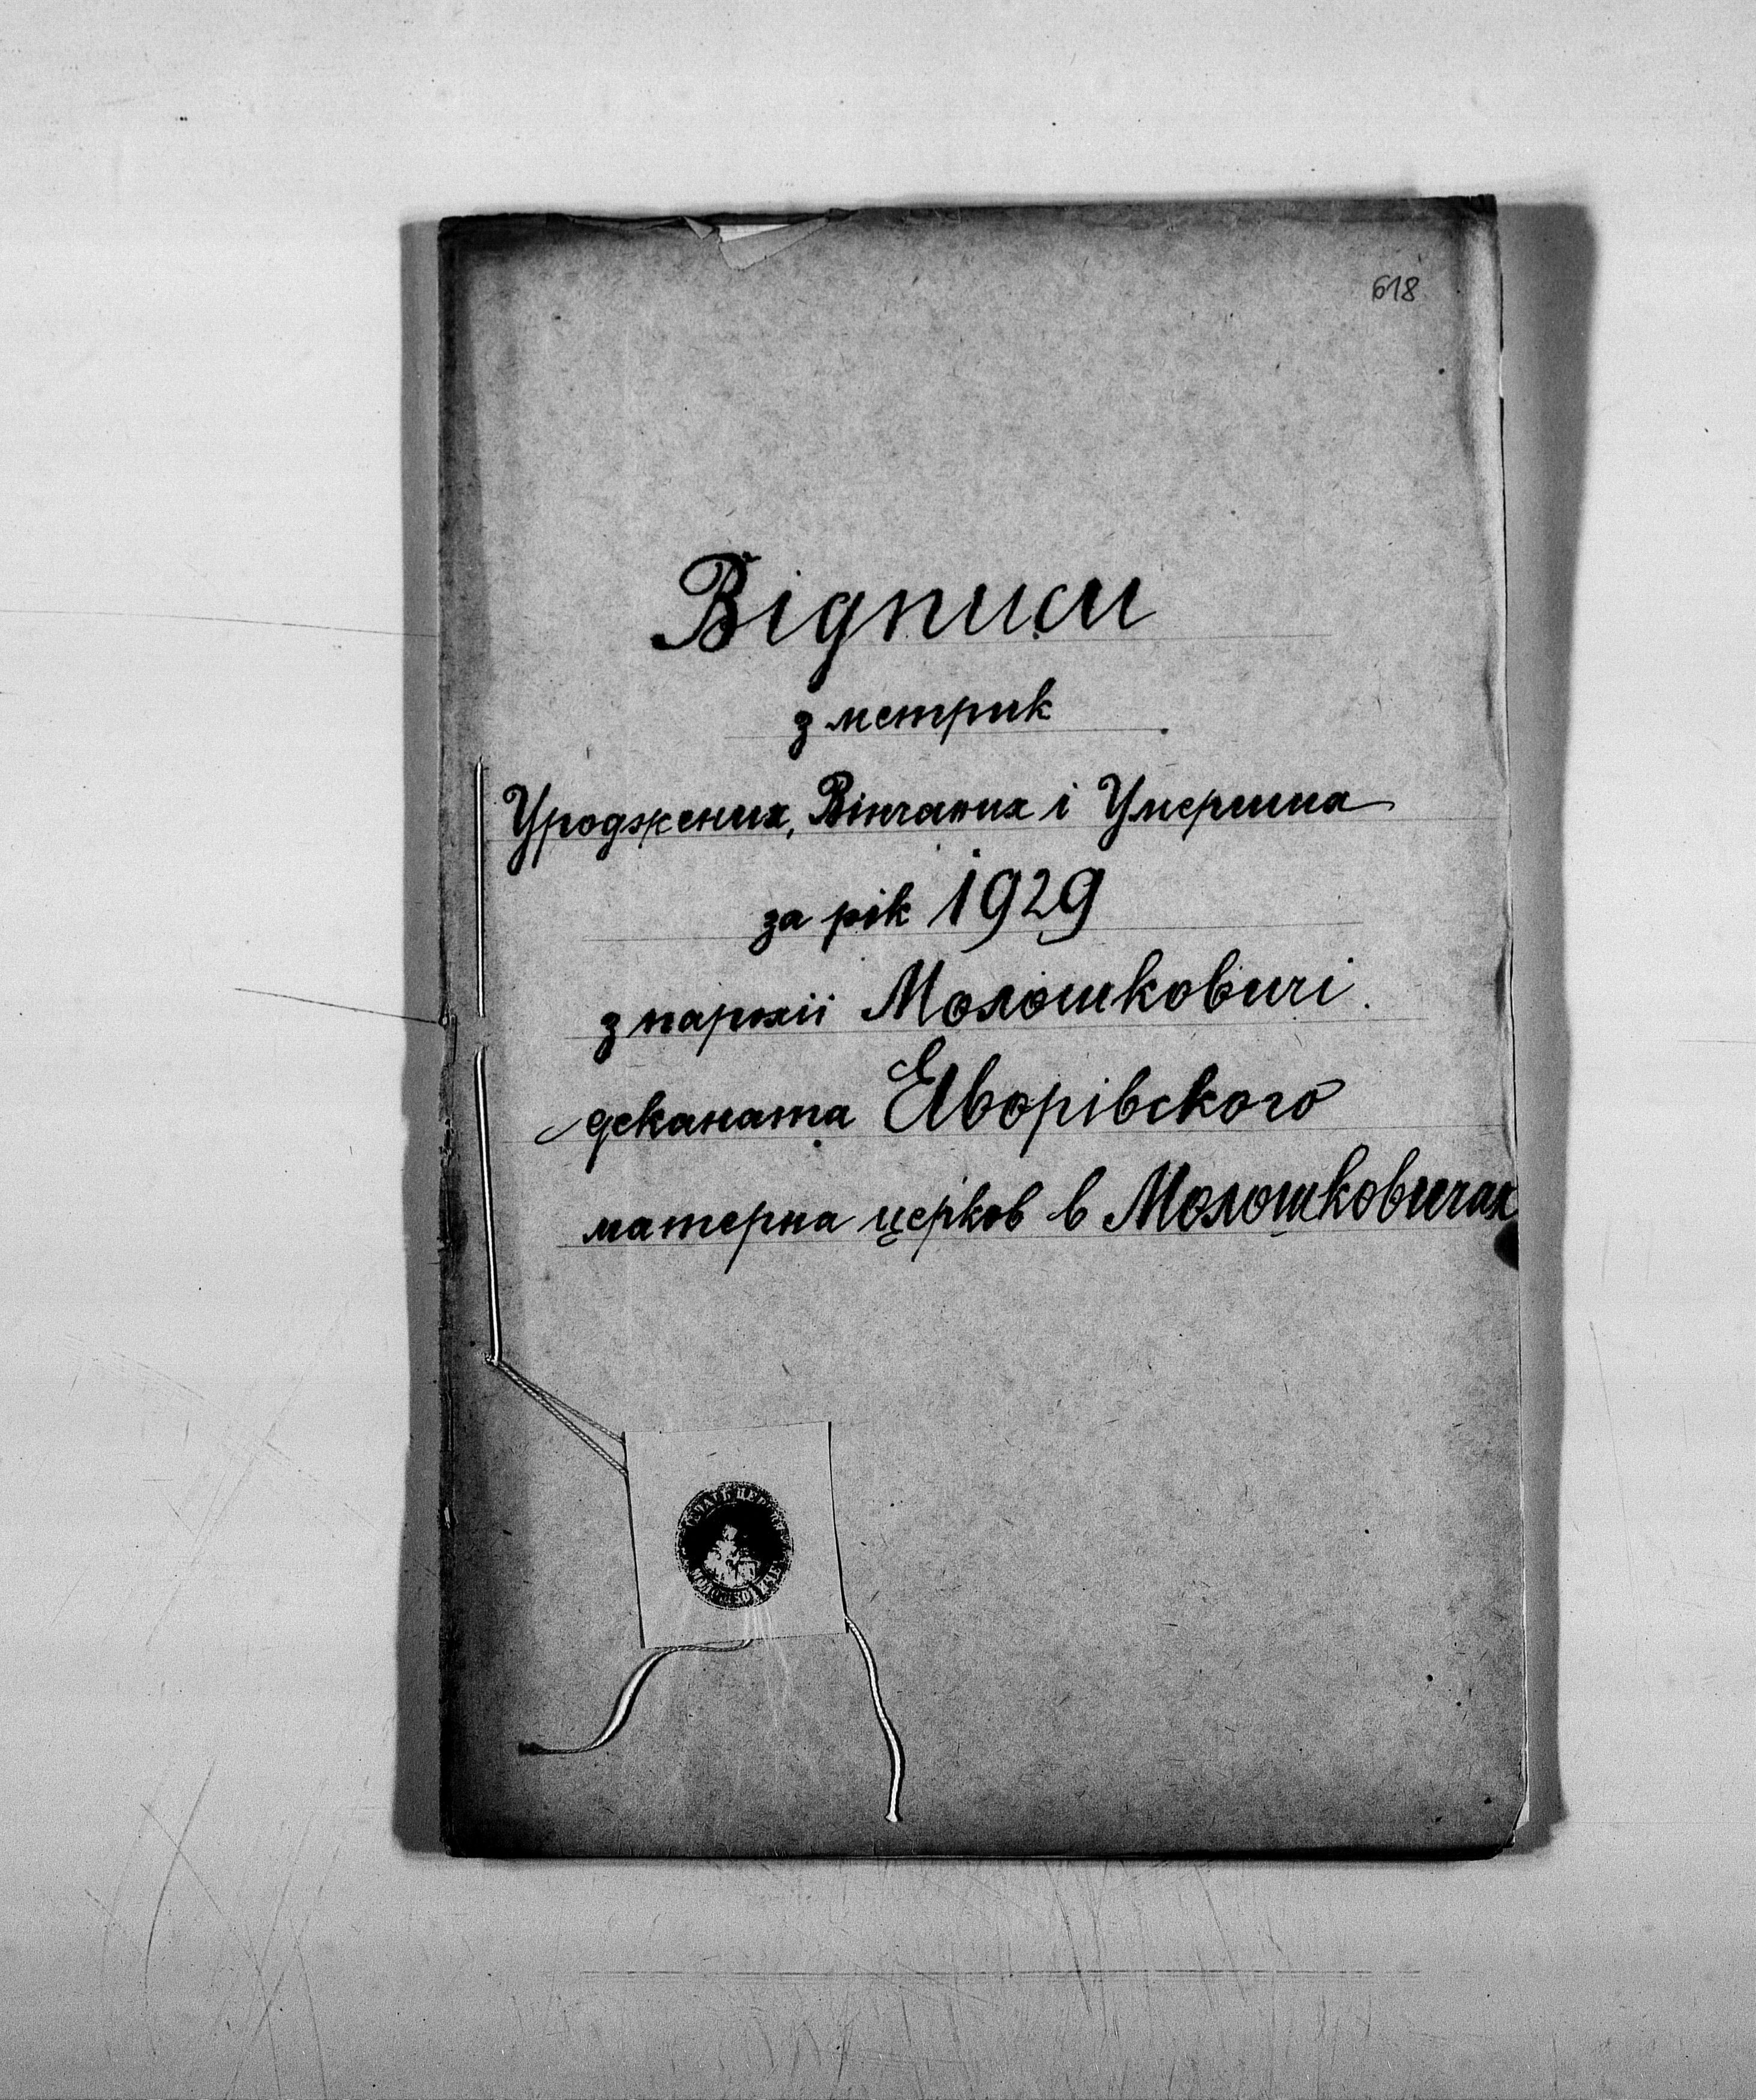 618
Відписи
з метрик
Уроджених, Вінчаних і Умерших
за рік 1929
з парохії Молошковичі.
деканата Яворівского
матерна церков в Молошковичах
ПЕЧАТЬ ЦЕРКВ